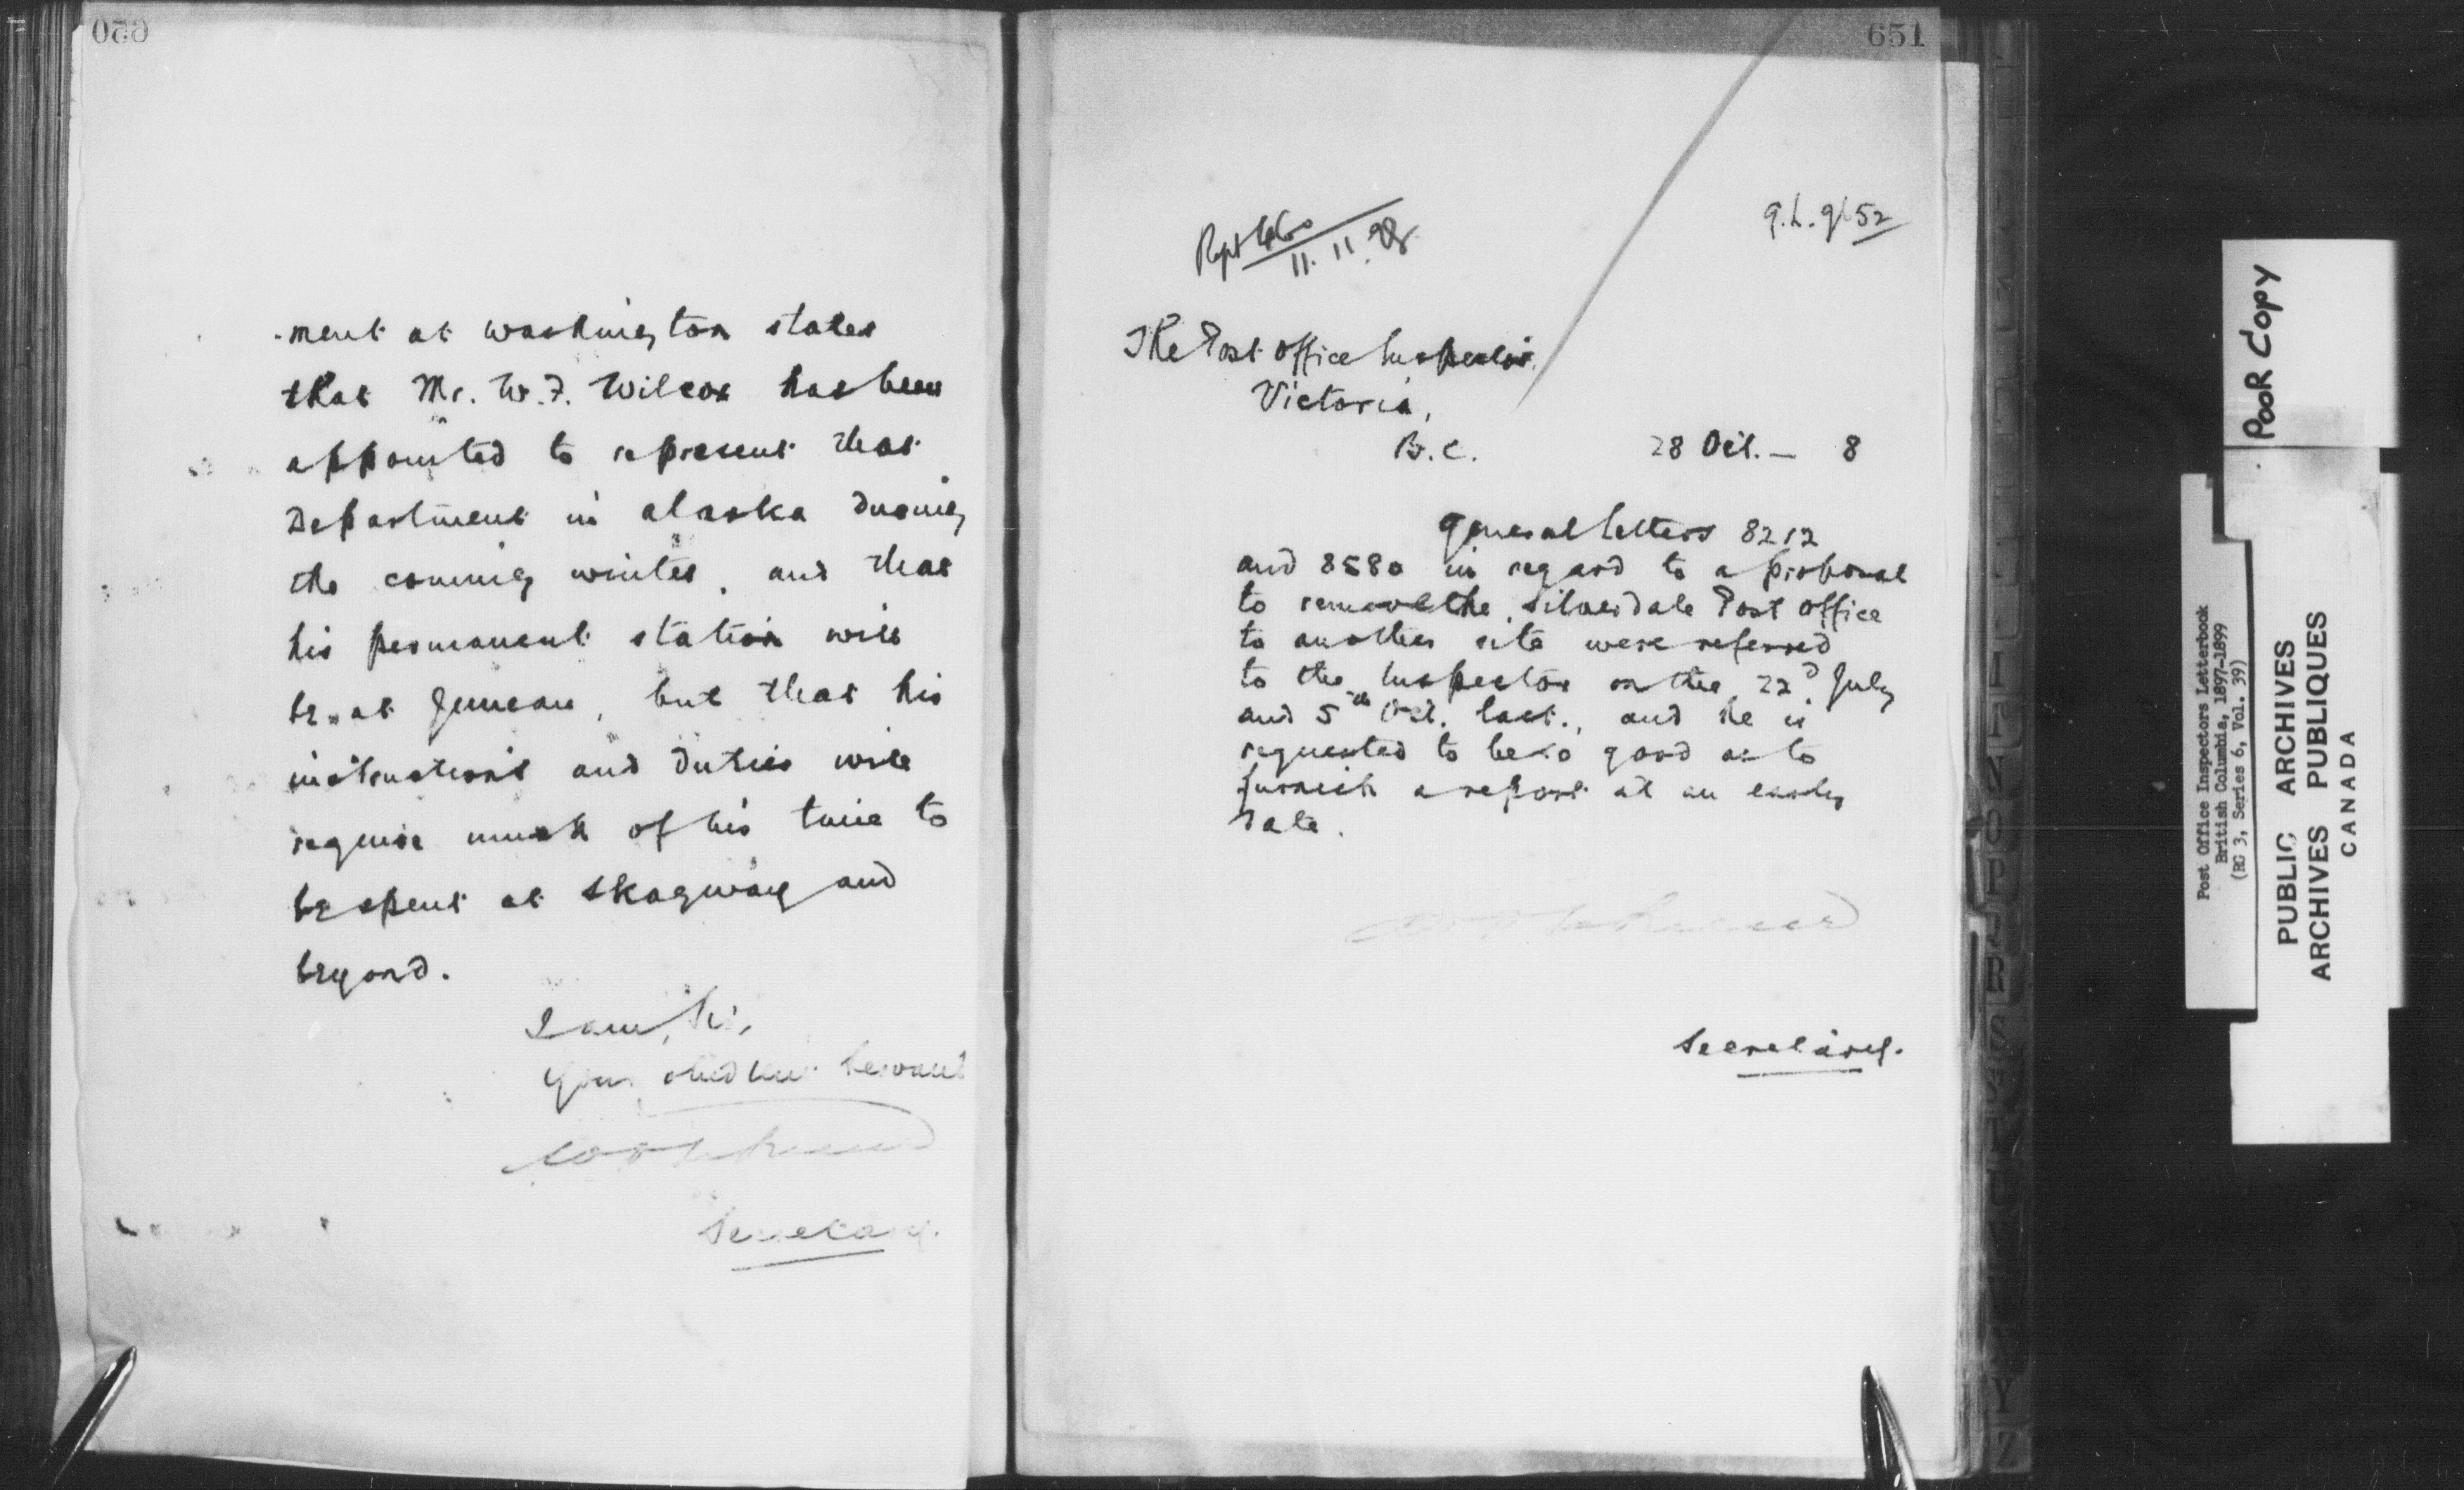 650
-ment at Washington states
that Mr. W. F. Wilcox has been
appointed to represent that
Department in Alaska during
the coming winter, and that
his permanent station will
be at Juneau, but that his
instructions and duties will
require much of his time to
be spent at Skagway and
beyond.
I am, Sir,
Your obedient Servant
Secretary.
651
11. 11. 98.
G.L. 9152
The Post Office Inspector,
Victoria,
B.C. 28 Oct. — 8
General Letters 8212
and 8580 in regard to a proposal
to remove the Silverdale Post Office
to another site were referred
to the Inspector on the 22d July
and 5th Oct. last., and he is
requested to be so good as to
furnish a report at an early
date.
Secretary.
POOR COPY
Post Office Inspectors Letterbook
British Columbia, 1897-1899
(RG 3, Series 6, Vol. 39)
PUBLIC ARCHIVES
ARCHIVES PUBLIQUES
CANADA